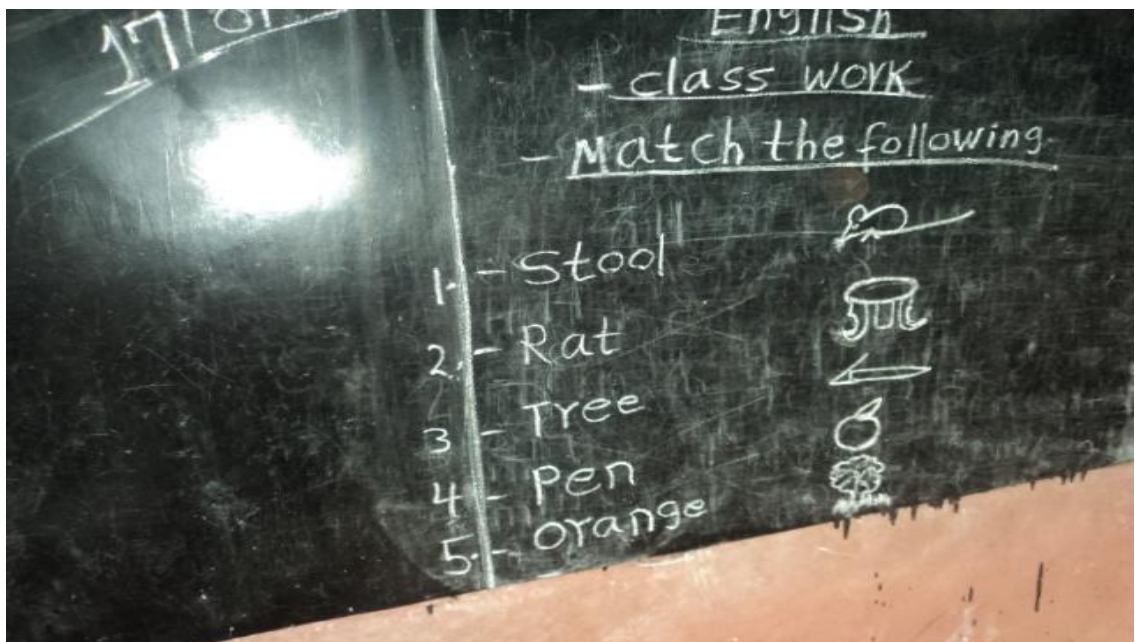 17/01
English
- class work
- Match the following.
1. - Stool
2. - Rat
3 - Tree
4 - Pen
5. - Orange